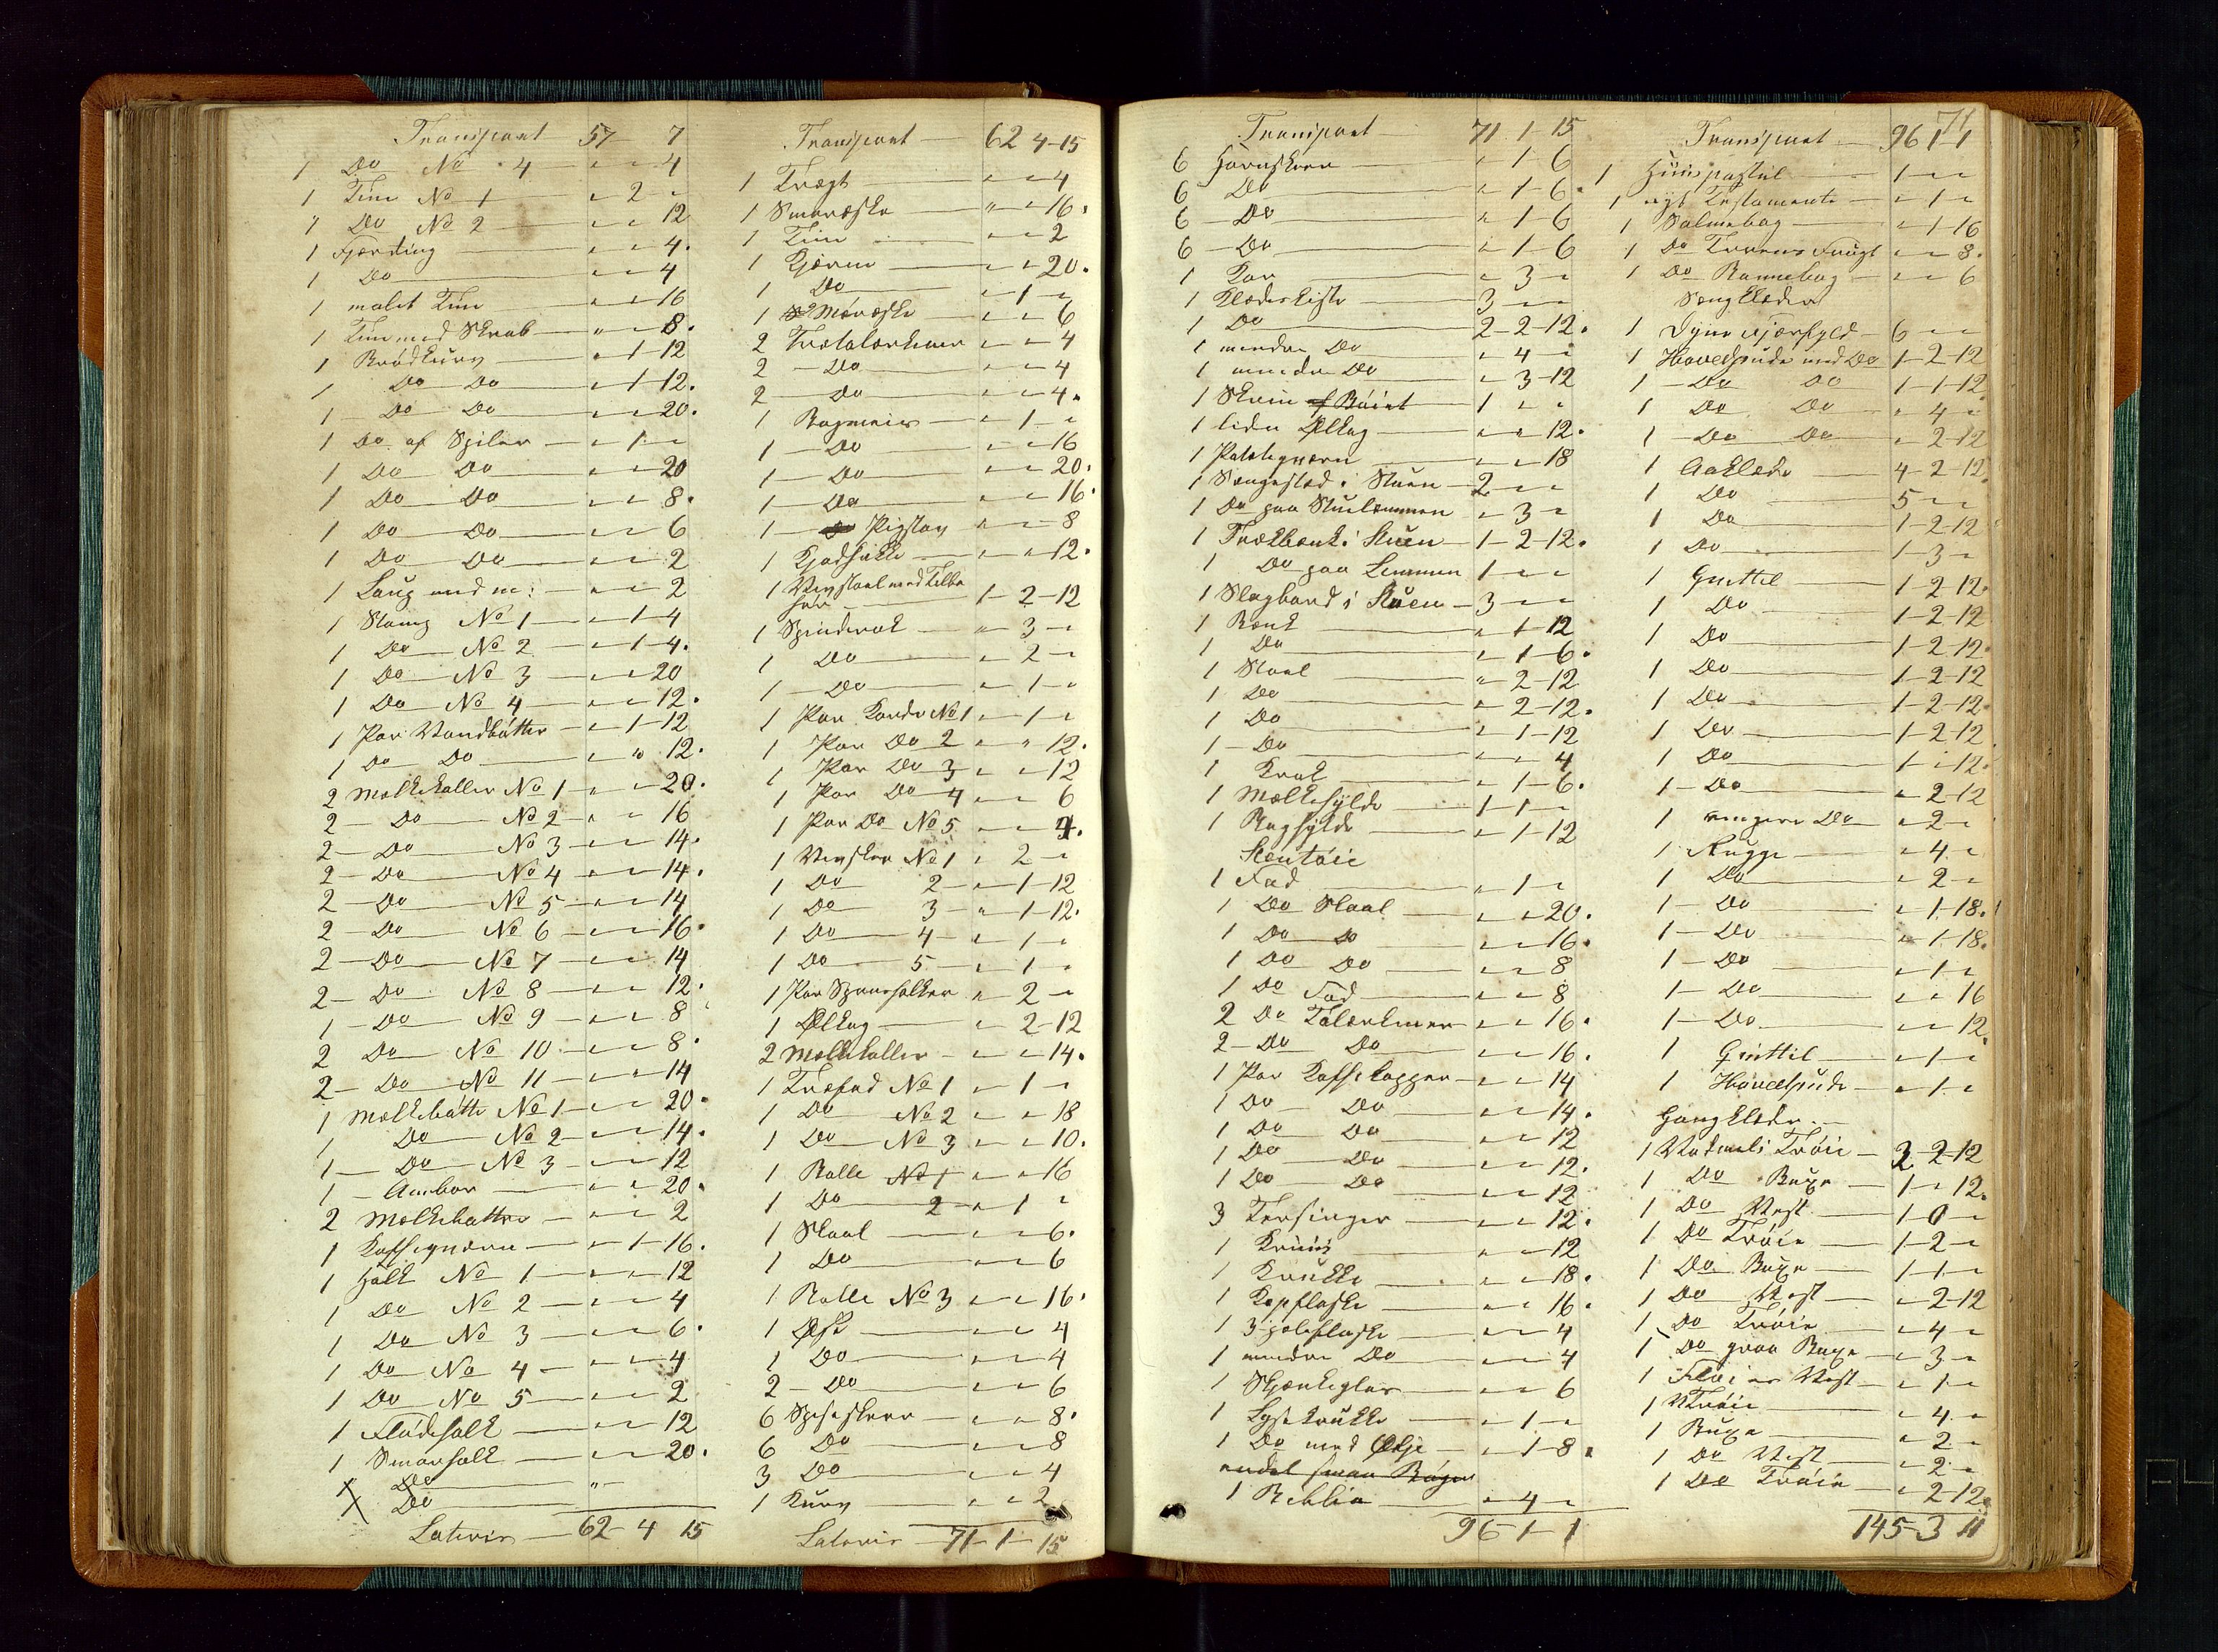 Transport 57 7
1 Do No 4 " " 4
1 Tine No 1 " 2 "
1 Do No 2 " " 12
1 Fjerding " " 4.
1 Do " " 4
1 malet Tine " " 16
1 Tine med Skrab " " 8.
1 Brødkurv " 1 12
1 Do Do " 1 12.
1 Do Do " " 20.
1 Do af Spiler " 1 "
1 Do Do " " 20
1 Do Do " " 8.
1 Do Do " " 6
1 Do Do " " 2
1 Laug med m: " " 2
1 Stamp No 1 " 1 4
1 Do No 2 " 1 4.
1 Do No 3 " " 20
1 Do No 4 " " 12.
1 Par Vandbøtter " 1 12
1 Do Do " " 12.
2 Melkekoller No 1 " " 20.
2 Do No 2 " " 16
2 Do No 3 " " 14.
2 Do No 4 " " 14.
2 Do No 5 " " 14
2 Do No 6 " " 16.
2 Do No 7 " " 14
2 Do No 8 " " 12.
1 Do No 9 " " 8
2 Do No 10 " " 8.
2 Do No 11 " " 14
1 Melkebøtte No 1 " " 20.
1 Do No 2 " " 14.
1 Do No 3 " " 12
1 Ambar " " 20.
2 Melkebøtter " " 2
1 Kaffeqværn " 1 16.
1 Holk No 1 " " 12
1 Do No 2 " " 4
1 Do No 3 " " 6.
1 Do No 4 " " 4
1 Do No 5 " " 2
1 Flødeholk " " 12
1 Smørholk " " 20.
1 Do "
1 Do
Lateris 62 4 15
Transport 62 4 15
1 Tragt " " 4
1 Smøræske " " 16.
1 Tine " " 2
1 Kjærne " " 20.
1 Do " 1 "
1 Do Møræske " " 6
2 Trætalærkener " " 4
2 Do " " 4
2 Do " " 4.
1 Bagmeis " 1 "
1 Do " " 16
1 Do " " 20.
1 Do " " 16.
1 Pigstav " " 8
1 Kjødstikke " " 12.
1 Vevstoel med Tilbe
hør 1 2 12
1 Spinderok " 3 "
1 Do " 2 "
1 Do " 1 "
1 Par Karde No 1 " 1 "
1 Par Do 2 " " 12.
1 Par Do 3 " " 12
1 Par Do 4 " " 6
1 Par Do No 5 " " 4.
1 Vevskee No 1 " 2 "
1 Do 2 " 1 12
1 Do 3 " 1 12.
1 Do 4 " 1 "
1 Do 5 " 1 "
1 Par " 2 "
1 Ølkag " 2 12
2 Melkekoller " " 14.
1 Træfad No 1 " 1 "
1 Do No 2 " " 18
1 Do No 3 " " 10.
1 Bolle No 1 " " 16
1 Do 2 " 1 "
1 Skaal " " 6.
1 Do " " 6
1 Bolle No 3 " " 16.
1 Øse " " 4
1 Do " " 4
2 Do " " 6
6 Spiseskeer " " 8.
6 Do " " 8
3 Do " " 4
1 Kurv " " 2
Lateris 71 1 15
Transport 71 1 15
6 Hornskeer " 1 6
6 Do " 1 6.
6 Do " 1 6
6 Do " 1 6
1 Kar " 3 "
1 Klædeskiste 3 " "
1 Do 2 2 12.
1 mindre Do " 4 "
1 mindre Do " 3 12
1 Skrin 1 " "
1 liden Ølkag " " 12.
1 Peberqværn " " 18
1 Sengested i Stuen 2 " "
1 Do paa Stuelemmen " 3 "
1 Trækbenk i Stuen 1 2 12.
1 Do paa Lemmen 1 " "
1 Slagbord i Stuen 3 " "
1 Benk " 1 12
1 Do " 1 6.
1 Stoel " 2 12
1 Do " 2 12.
1 Do " 1 12
1 Do " " 4
1 Krak " 1 6.
1 Melkehylde 1 1 "
1 Boghylde " 1 12
Stentøie
1 Fad " 1 "
1 Do Skaal " " 20.
1 Do Do " " 16.
1 Do Do " " 8
1 Do Fad " " 8
2 Do Talærkener " " 16.
2 Do Do " " 16.
1 Par Kaffekopper " " 14
1 Do Do " " 14.
1 Do Do " " 12
1 Do Do " " 12.
1 Do Do " " 12
3 Tersinger " " 12.
1 Kruus " " 12
1 Krukke " " 18.
1 Kopflaske " " 16.
1 3 pæleflaske " " 4
1 mindre Do " " 4
1 Skjænkeglas " " 6
1 Lysekrukke " 1 "
1 Do med Ølje " 1 8.
endel smaa Bøger
1 Biblia " 4 "
96 1 1
71
Transport 96 1 1
1 Huuspostil 1 " "
1 nyt Testamente " 1 "
1 Salmebog " 1 16
1 Do Troens Frugt " " 8.
1 Do Bønnebog " " 6
Sengklæder
1 Dyne Fjærfyld 6 " "
1 Hovedpude med Do 1 2 12
1 Do Do 1 1 12.
1 Do Do " 4 "
1 Do Do " 2 12
1 Aaklæde 4 2 12.
1 Do 5 " "
1 Do 1 2 12
1 Do 1 3 "
1 Grættil 1 2 12.
1 Do 1 2 12
1 Do 1 2 12.
1 Do 1 2 12
1 Do 1 2 12.
1 Do 1 2 12
1 Do 1 " 12.
1 Do " 2 12
1 ringere Do " 2 "
1 Rugge " 4 "
1 Do " 2 "
1 Do " 1 18.
1 Do " 1 18.
1 Do " 1 "
1 Do " " 16
1 Do " " 12.
1 Grættil " 1 "
1 Hovedpude " 1 "
Gangklæder
1 Vadmels Trøie 3 2 12
1 Do Buxe 1 " 12.
1 Do Vest 1 0 "
1 Do Trøie 1 2 "
1 Do Buxe 1 1 "
1 Do Vest " 2 12
1 Do Trøie " 4 "
1 Do graa Buxe " 3 "
1 Vest " 1 "
1 Trøie " 4 "
1 Buxe " 2 "
1 Do Vest " 2 "
1 Do Trøie " 2 12.
145 3 11